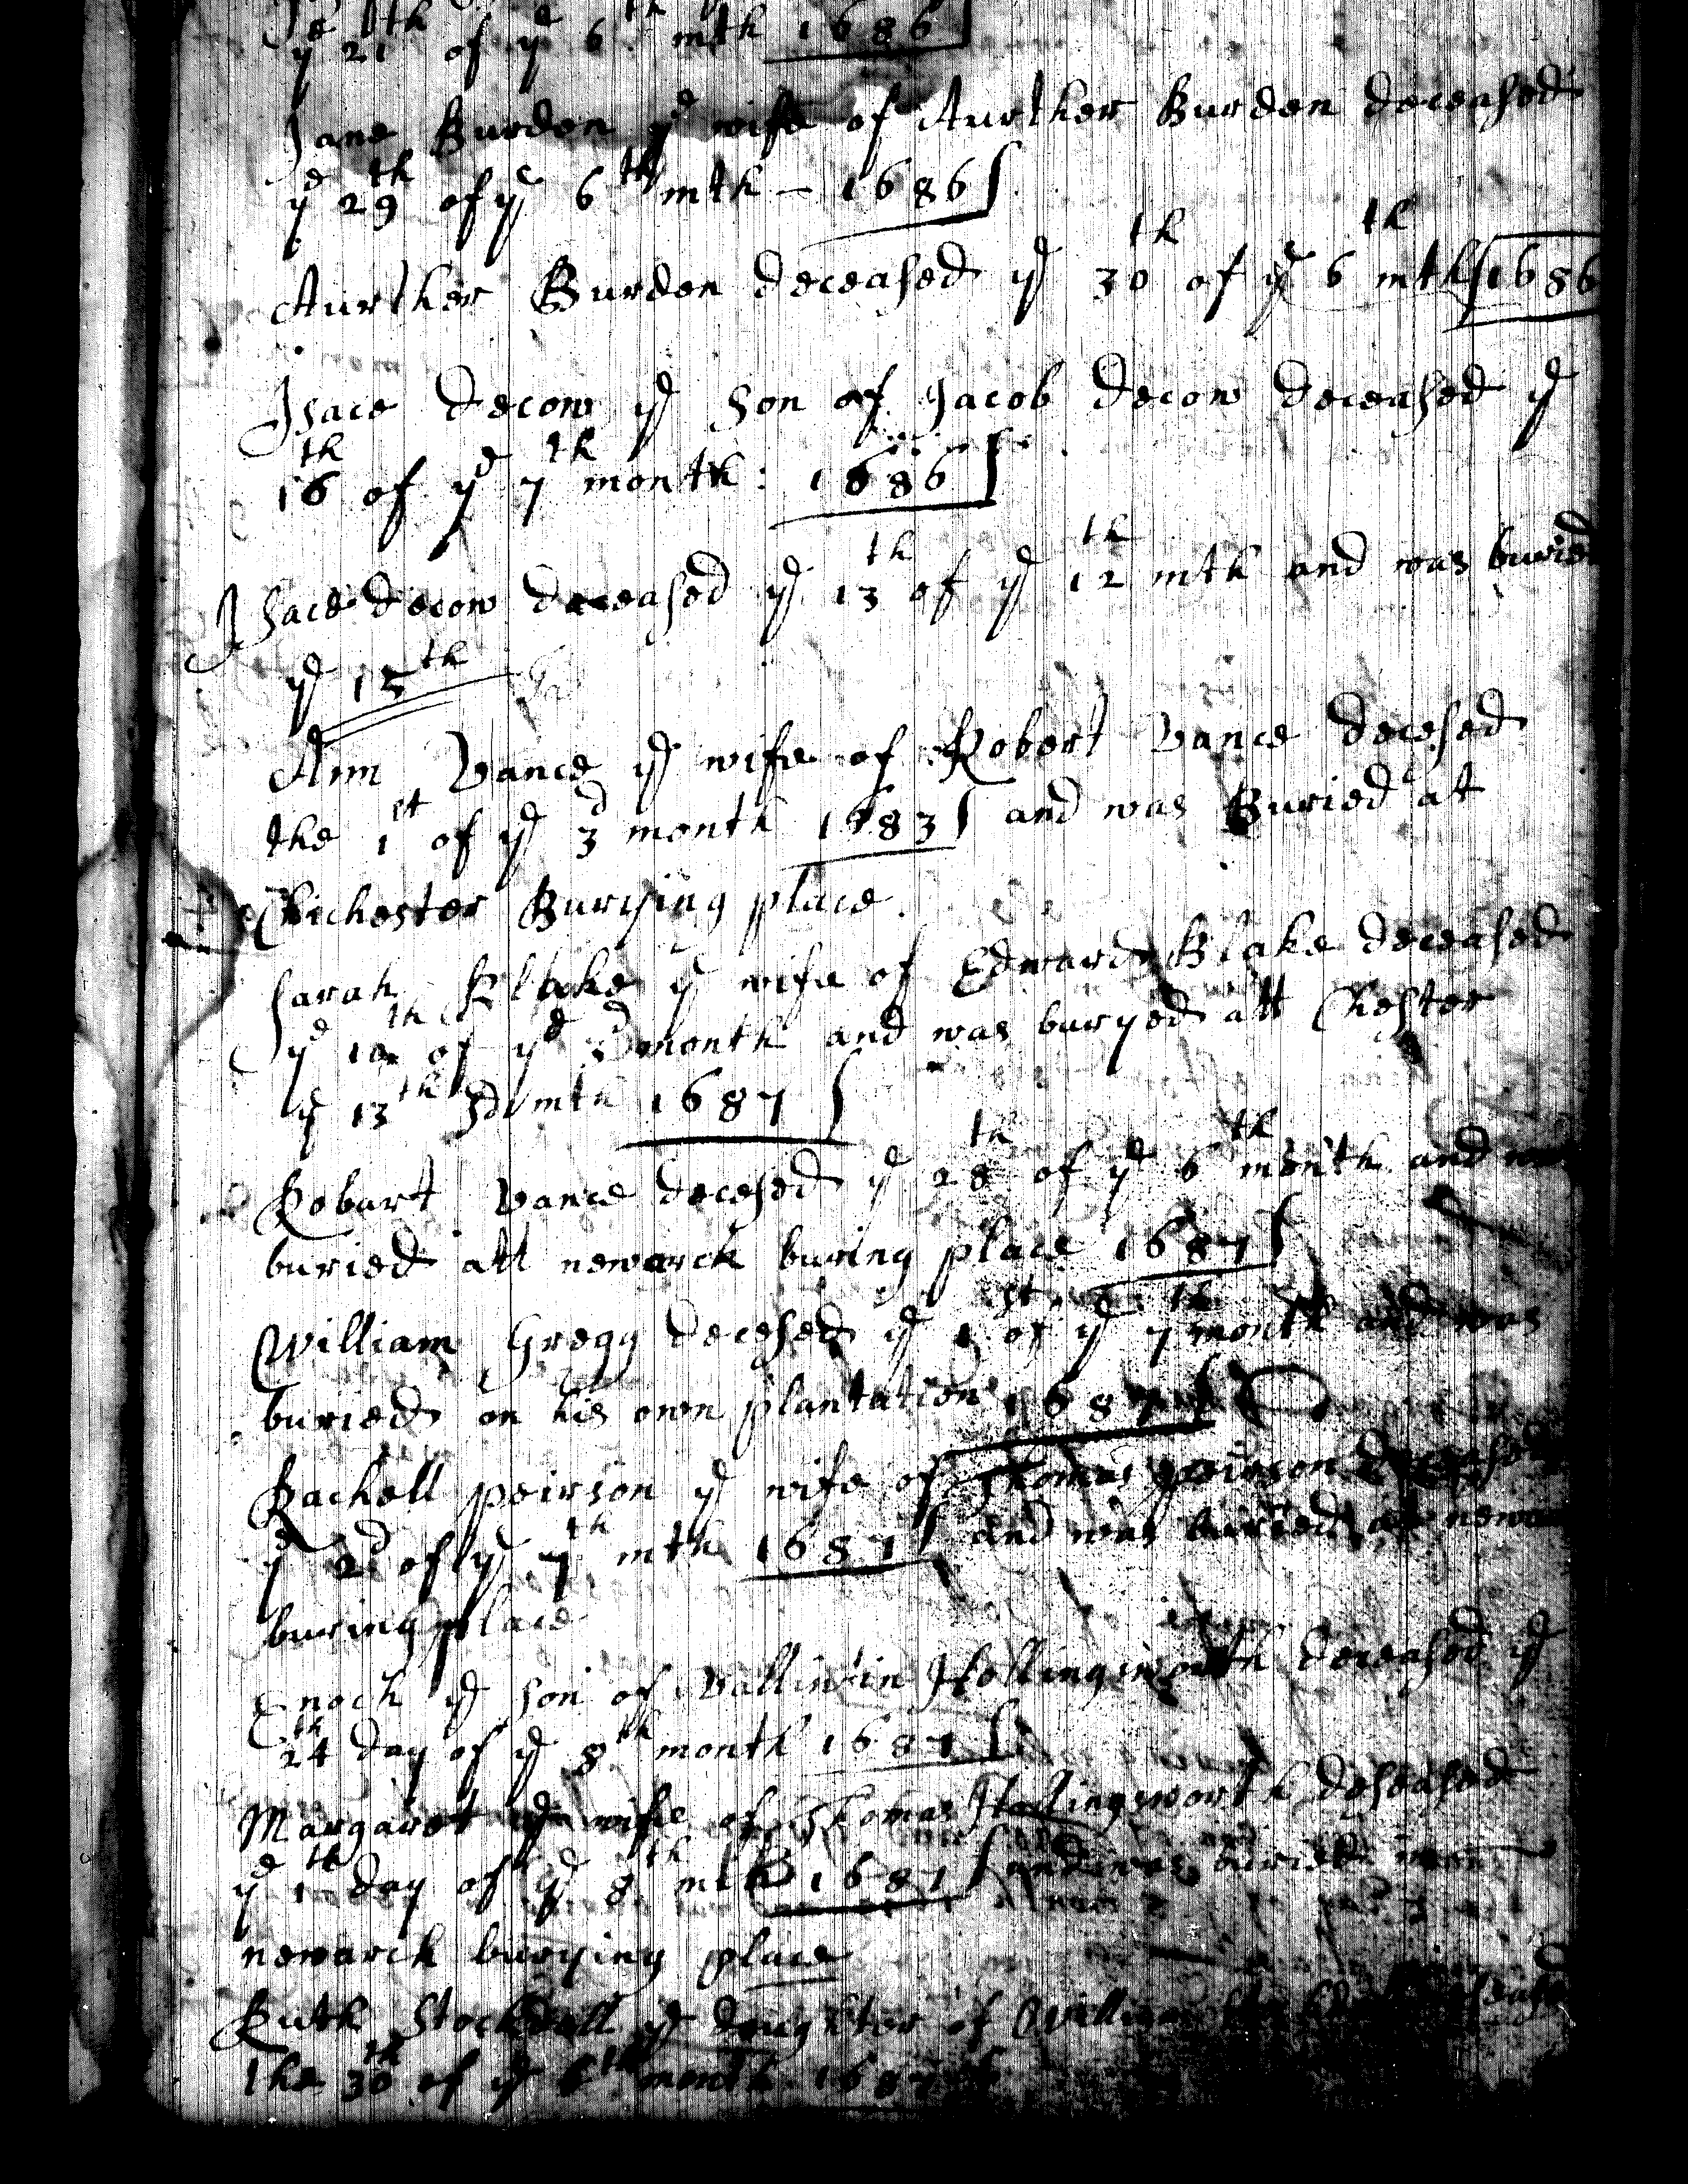 ye 21th of ye 6th mth 1686
Jane Burden ye wife of Aurther Burden deceased
ye 29th of ye 6th mth – 1686
Aurther Burden deceased ye 30th of ye 6th mth 1686
Isace Decow ye Son of Jacob Decow deceased ye
16th of ye 7th month: 1686
Isace Decow deceased ye 13th of ye 12th mth and was buried
ye 15th
Ann Vance ye wife of Robert Vance Decesed
the 1st of ye 3d month 1683 and was Buried at
Chichester Burying place.
Sarah Blake ye wife of Edward Blake deceased
ye 10th of ye 3d month and was buryed att Chester
ye 13th 3d mth 1687
Robart Vance decesed ye 28th of ye 6th month and
buried att newarck buring place 1687
William Gregg decesed ye 1st of ye 7th month and was
buried on his own plantation 1687
Rachell peirson ye wife of Thomas peirson Deceased
ye 2d of ye 7th mth 1687 and was buried at newar
buring place
Enoch ye son of Vallintin Hollingsworth Deceased ye
24th day of ye 8th month 1687
Margaret ye wife of Thomas Hollingsworth deseased
ye 1th day of ye 8th mth 1687 and was buried in
newarck burying place
Ruth Stockdell ye daughter of William
the 30th of ye 6th month 1687